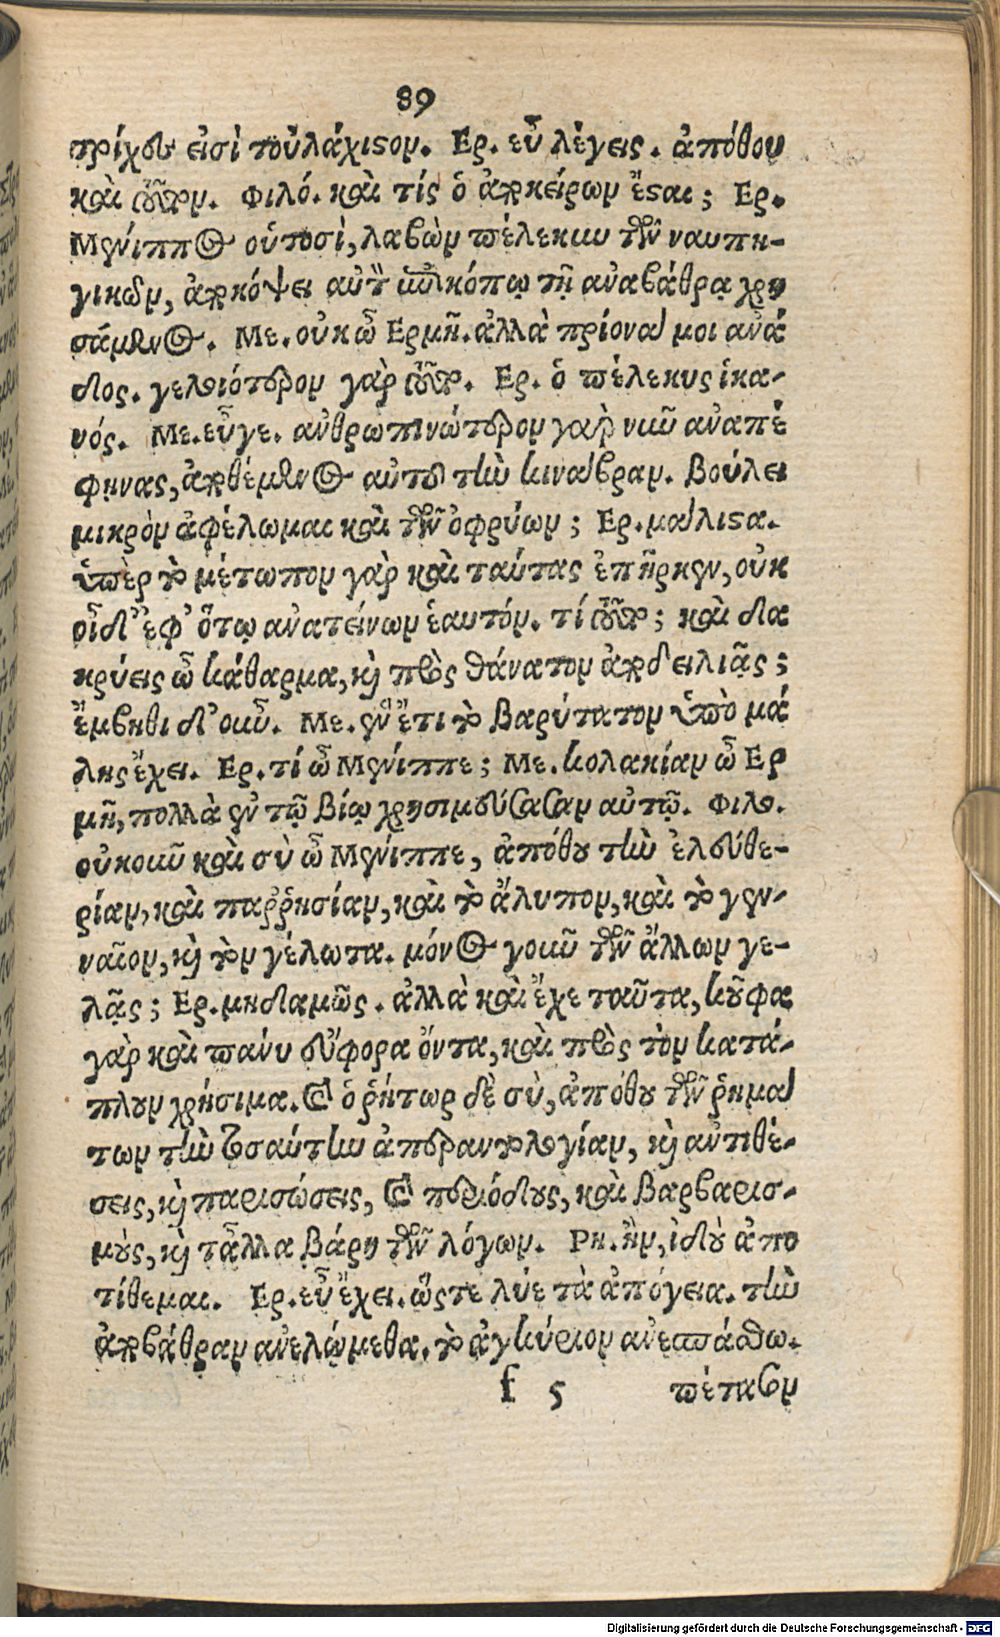 89
τρίχες εἰσὶ τοὐλάχιστον. Ερ. εὖ λέγεις. ἀπόθου
καὶ ταύτην. Φιλό. καὶ τίς ὁ ἀποκείρων ἔσται; Ερ.
Μένιππος οὑτοσὶ, λαβὼν πέλεκυν τῶν ναυπη-
γικῶν, ἀποκόψει αὐτὸν ἐπικόπῳ τῇ ἀναβάθρᾳ χρη
σάμενος. Με. οὐκ ὦ Ερμῆ. ἀλλὰ πρίονά μοι ἀνά
δος. γελοιότερον γὰρ τοῦτο. Ερ. ὁ πέλεκυς ἱκα-
νός. Με. εὖγε. ἀνθρωπινώτερον γὰρ νῦν ἀναπέ
φηνας, ἀποθέμενος αὐτοῦ τὴν κινάβραν. βούλει
μικρὸν ἀφέλωμαι καὶ τῶν ὀφρύων; Ερ. μάλιστα.
ὑπὲρ τὸ μέτωπον γὰρ καὶ ταύτας ἐπῆρκεν, οὐκ
οἶδ' ἐφ' ὅτῳ ἀνατείνων ἑαυτόν. τί τοῦτο; καὶ δα
κρύεις ὦ κάθαρμα, καὶ πρὸς θάνατον ἀποδειλιᾷς;
ἔμβηθι δ' οὖν. Με. ἓν ἔτι τὸ βαρύτατον ὑπὸ μά
λης ἔχει. Ερ. τί ὦ Μένιππε; Με. κολακίαν ὦ Ερ
μῆ, πολλὰ ἐν τῷ βίῳ χρησιμεύσασαν αὐτῷ. Φιλο.
οὐκοῦν καὶ σὺ ὦ Μένιππε, ἀπόθου τὴν ἐλευθε-
ρίαν, καὶ παῤῥησίαν, καὶ τὸ ἄλυπον, καὶ τὸ γεν-
ναῖον, καὶ τὸν γέλωτα. μόνος γοῦν τῶν ἄλλων γε-
λᾷς; Ερ. μηδαμῶς. ἀλλὰ καὶ ἔχε ταῦτα, κοῦφα
γὰρ καὶ πάνυ εὔφορα ὄντα, καὶ πρὸς τὸν κατά-
πλουν χρήσιμα. καὶ ὁ ῥήτωρ δὲ σὺ, ἀπόθου τῶν ῥημά
των τὴν τοσαύτην ἀπεραντολογίαν, καὶ ἀντιθέ-
σεις, καὶ παρισώσεις, καὶ περιόδους, καὶ βαρβαρισ-
μοὺς, καὶ τἆλλα βάρη τῶν λόγων. Ρη. ἢν, ἰδοὺ ἀπο
τίθεμαι. Ερ. εὖ ἔχει. ὥστε λύε τὰ ἀπόγεια. τὴν
ἀποβάθραν ἀνελώμεθα. τὸ ἀγκύριον ἀνεσπάσθω.
f 5 πέτασον
Digitalisierung gefördert durch die Deutsche Forschungsgemeinschaft - DFG